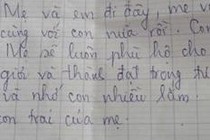 Mẹ và em đi đây, mẹ v
cùng với con nữa rồi. Con
Mẹ sẽ luôn phù hộ cho
giới và thành đạt trong tư
và nhớ con nhiều lắm
on trai của mẹ.